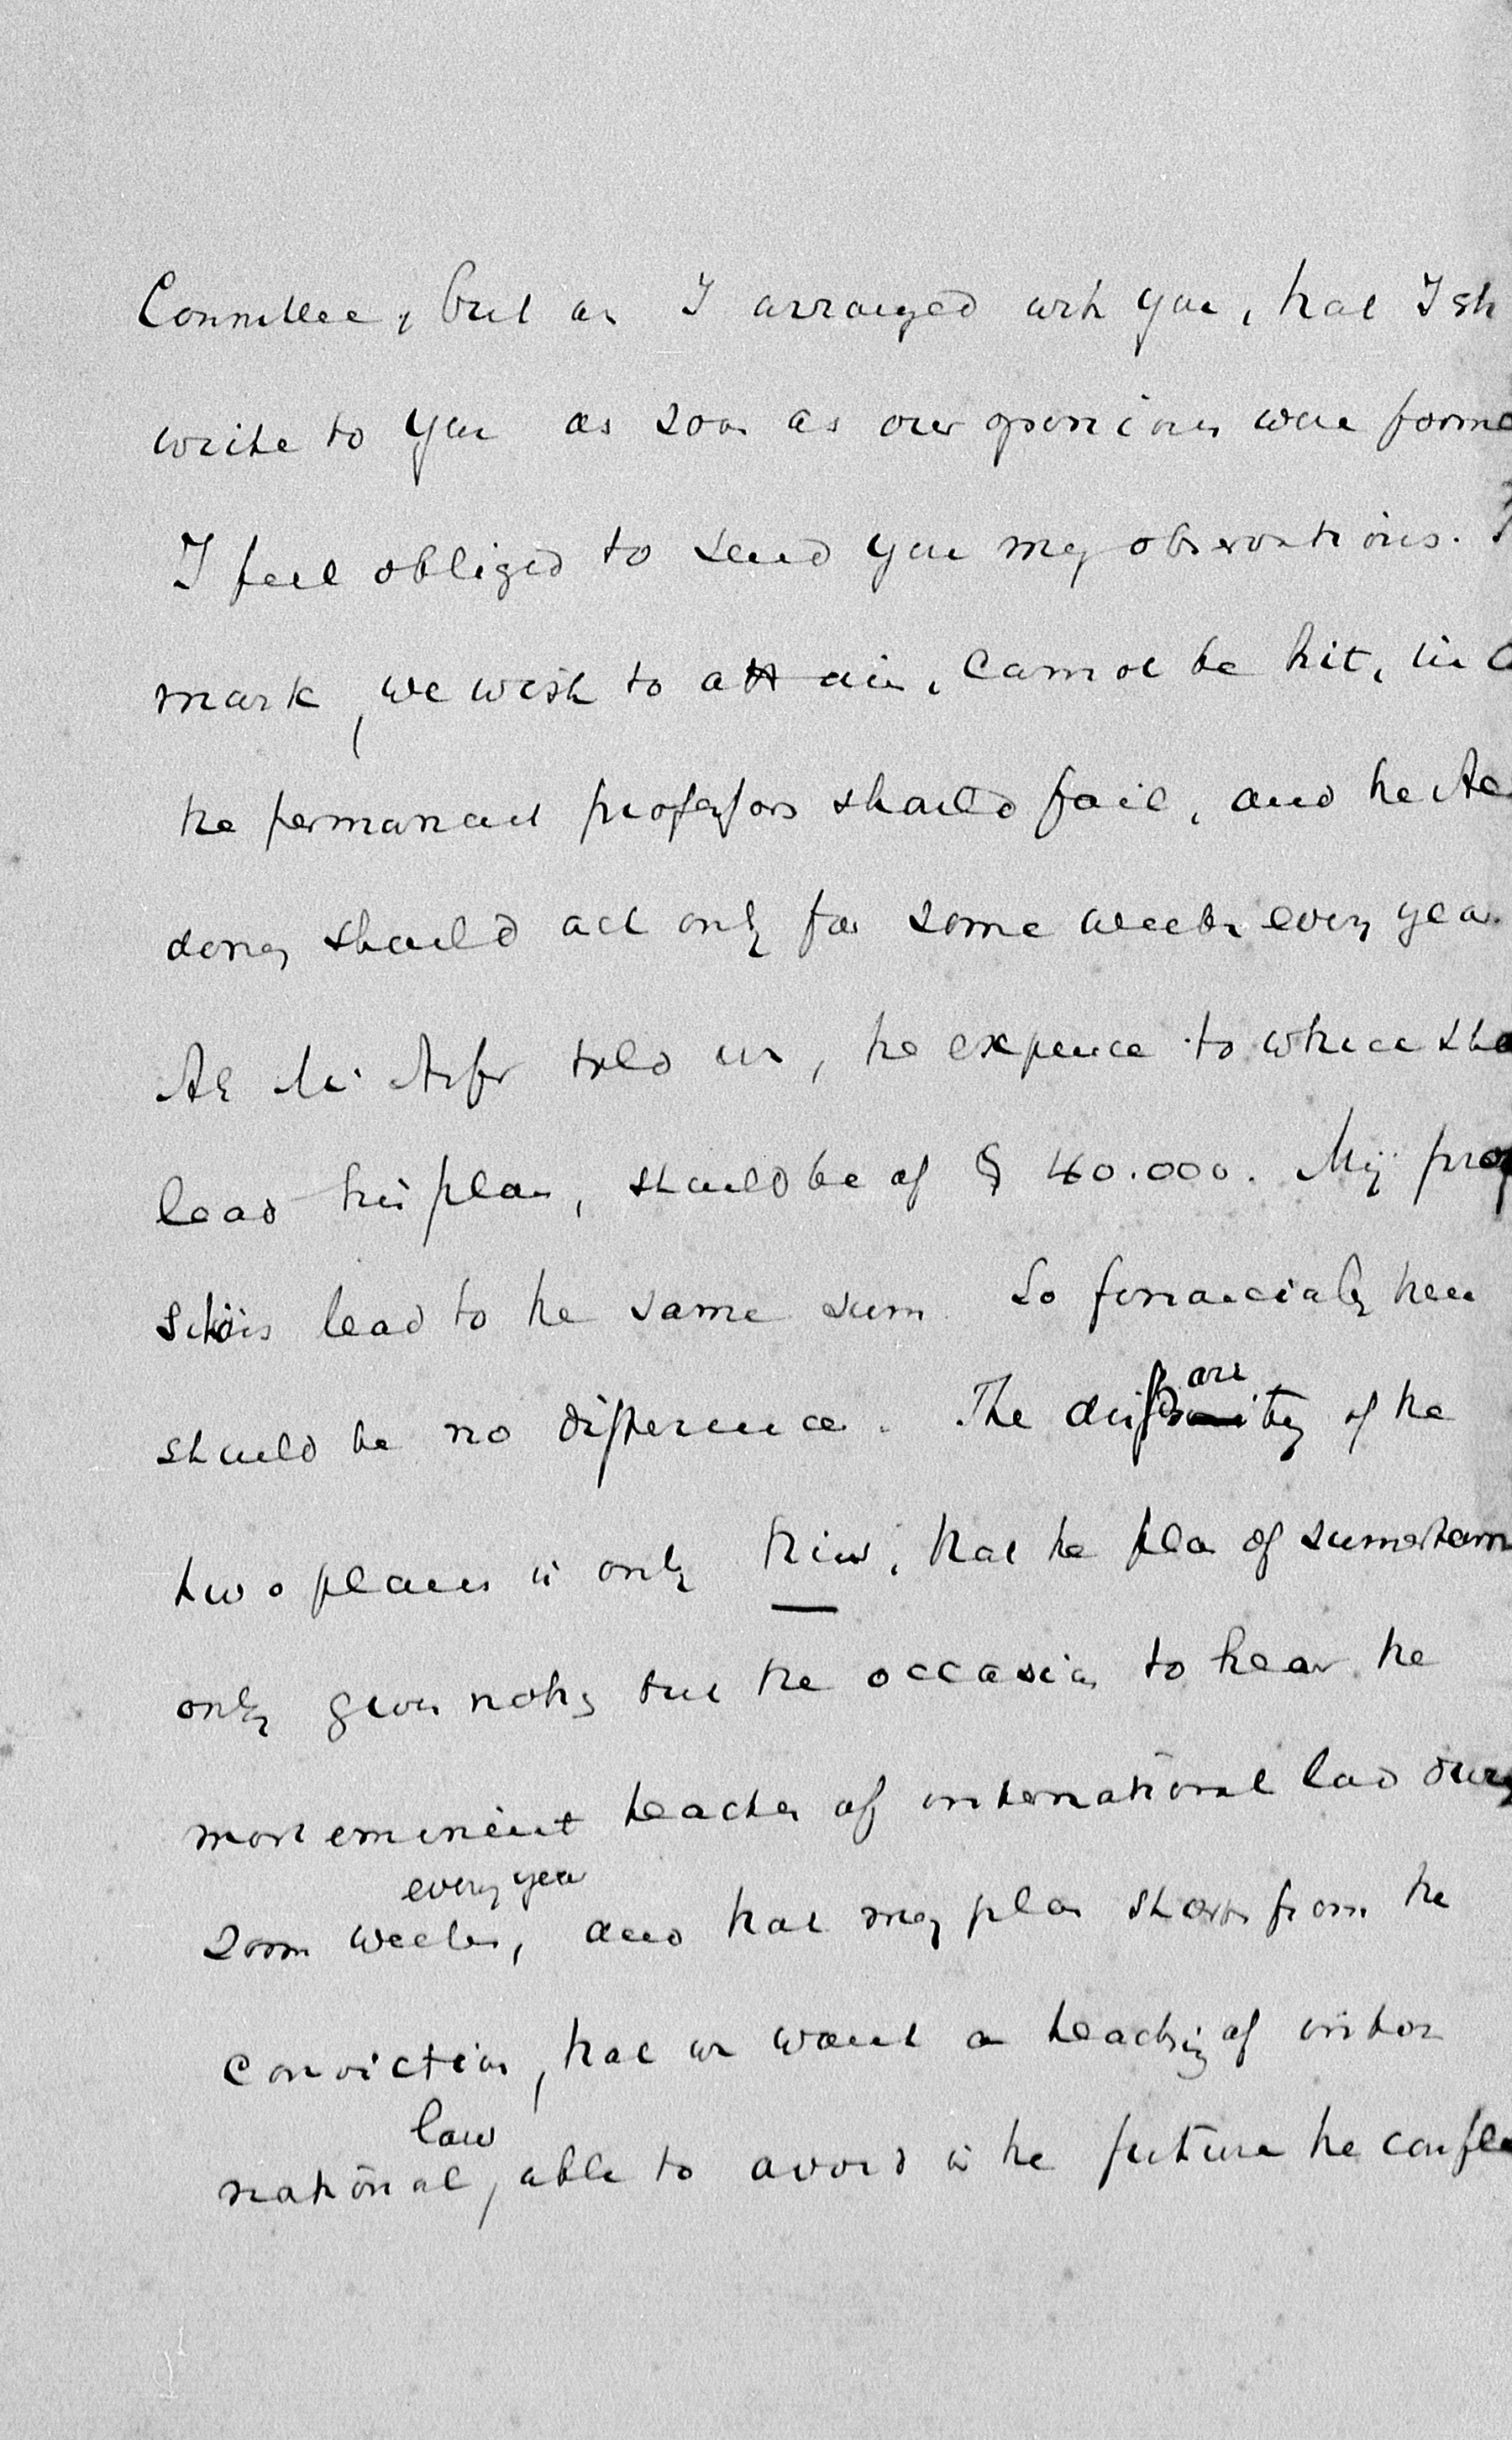 Committee, but as I arranged with you, that I sh
write to you as soon as our opinions were forme
I feel obliged to send you my observations.
mark, we wish to attain, cannot be hit, in c
the permanent professors should fail, and the Aca
demy should act only for some weeks every year.
As Mr Asser told us, the expence to which sho
lead his plan, should be of $ 40.000. My prop
sitions lead to the same sum So financially there
should be no difference. The disparity of the
two plans is only this, that the plan of
only gives nothing but the occasion to hear the
most eminent teachers of international law during
some weeks every year, and that my plan starts from the
conviction, that we want a teaching of inter
national law, able to avoid in the future the confli